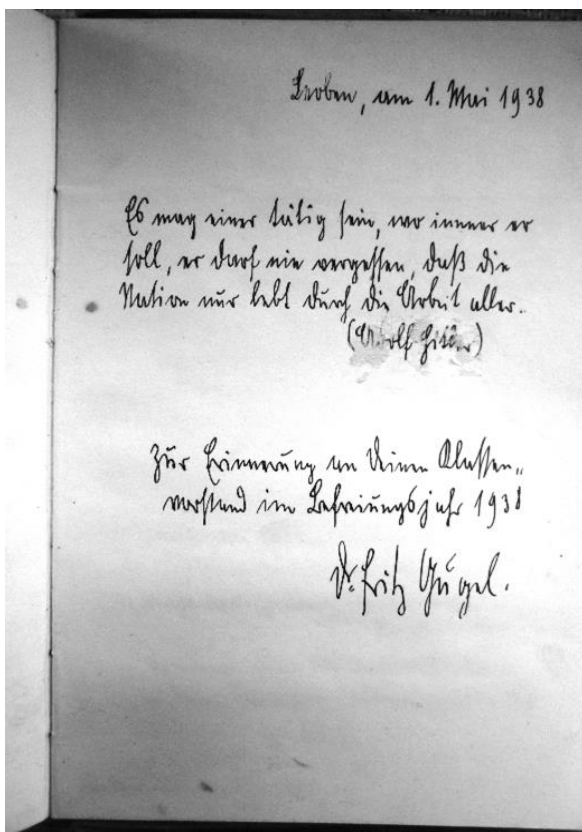 Leoben, am 1. Mai 1938
Es mag einer tätig sein, wo immer er
soll, er darf nie vergessen, daß die
Nation nur lebt durch die Arbeit aller.
(Adolf Hitler)
Zur Erinnerung an Deinen Klassen„
vorstand im Befreiungsjahr 1938
Dr. Fritz Gugel.